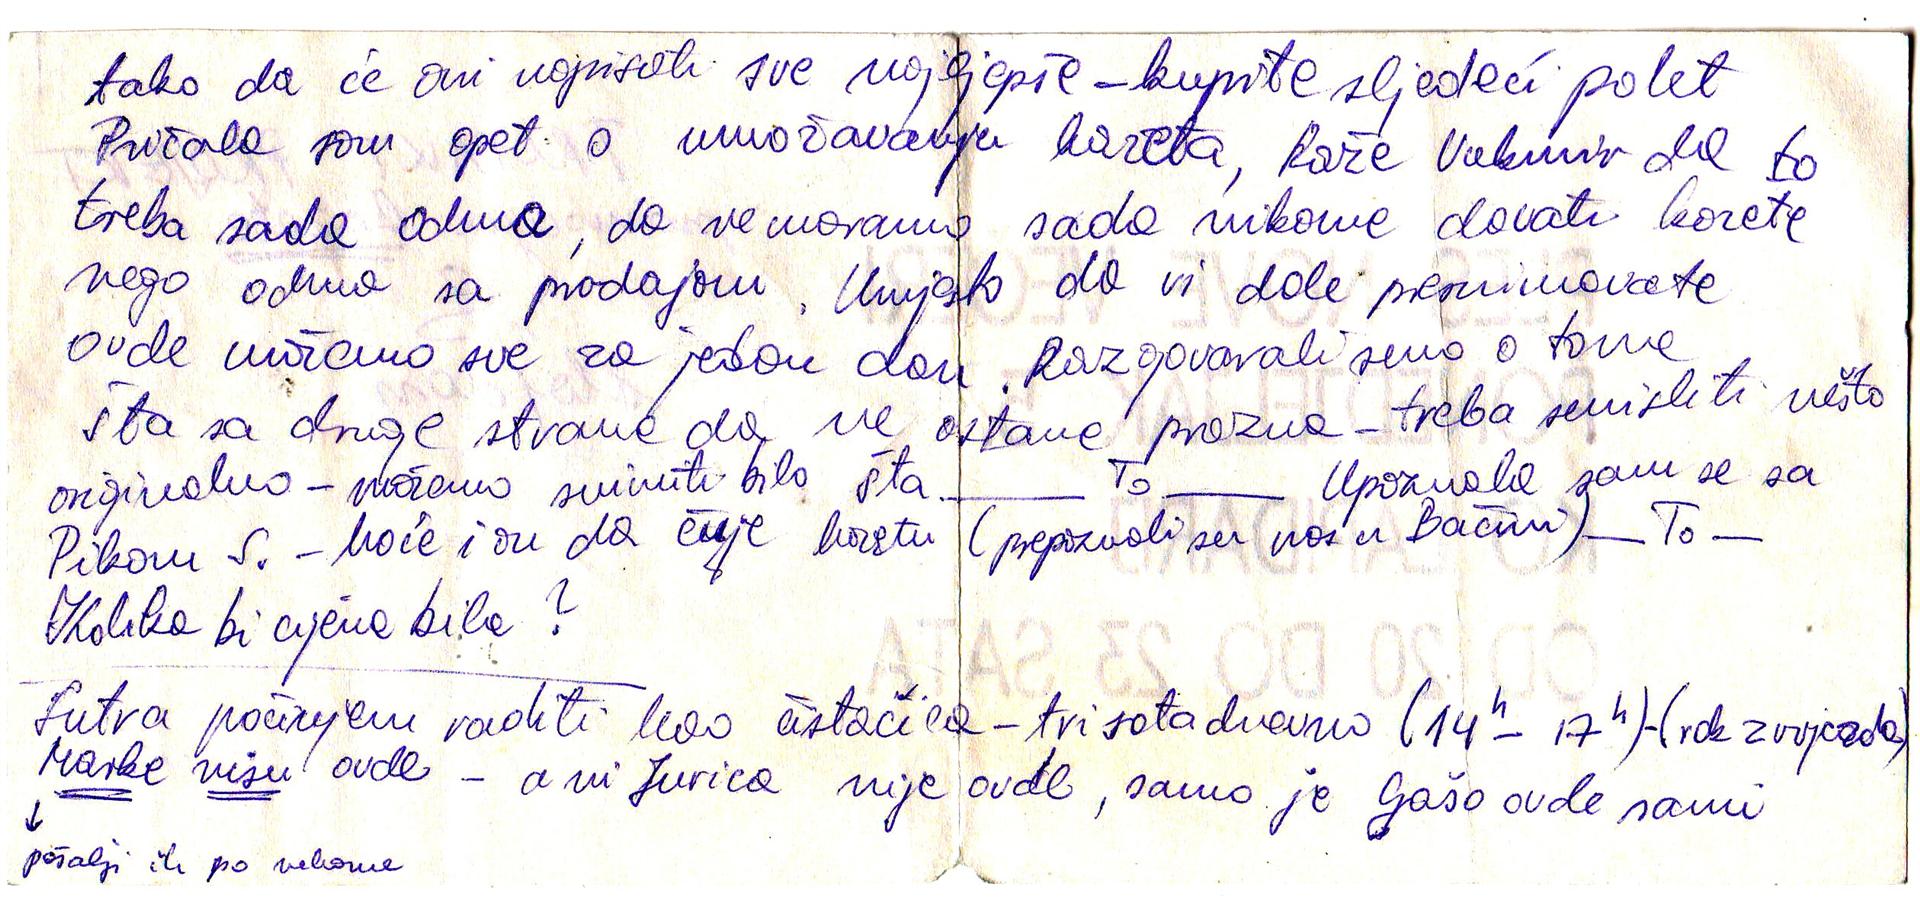 tako da će oni napisati sve najljepše – kupite sljedeći polet
Pričala sam opet o umnožavanju kazeta, kaže Vukmir da to
treba sada odma, da ne moramo sada nikome davati kazete
nego odma sa prodajom. Umjesto da vi dole presnimavate
ovde možemo sve za jedan dan. Razgovarali smo o tome
šta sa druge strane da ne ostane prazna – treba smisliti nešto
originalno – možemo snimiti bilo šta. ___ To ___ Upoznala sam se sa
Pikom S. – hoće i on da čuje kazetu (prepoznali su nas u Baćini) __ To __
Kolika bi cijena bila?
Sutra počinjem raditi kao čistačica – tri sata dnevno (14h – 17h) – (rok zvijezda)
Marke nisu ovde – a ni Jurica nije ovde, samo je Gašo ovde sami
↓
pošalji ih po nekome
OD 20 DO 23 SATA